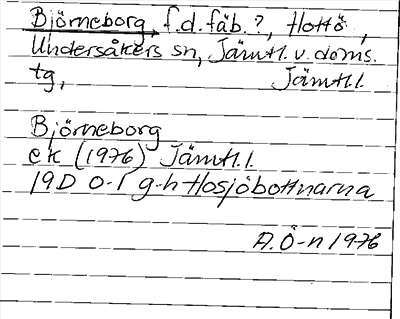 Björneborg, f.d. fäb. ?, Hottö,
Undersåkers sn, Jämtl. v. doms.
tg, Jämtl.l.
Björneborg
ek (1976) Jämtl.l.
19D 0-1 g-h Hosjöbottnarna
A.Ö-n 1976